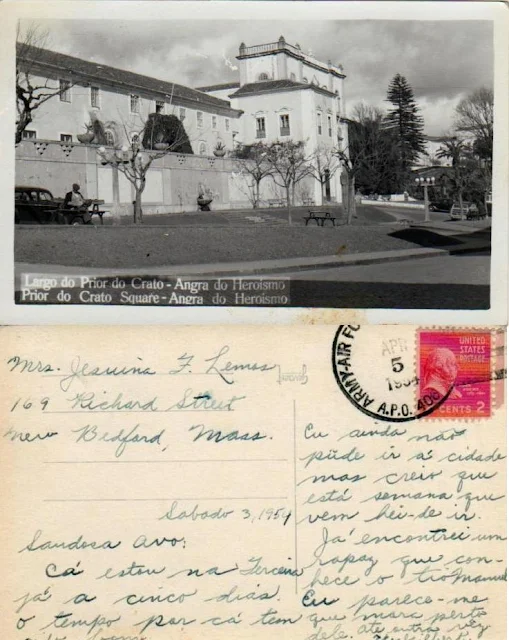 Largo do Prior do Crato - Angra do Heroismo
Prior do Crato Square - Angra do Heroismo
ARMY-AIR FO
APR
5
1954
A.P.O. 406
UNITED
STATES
POSTAGE
CENTS 2
Mrs. Jesuina F. Lemos
169 Richard Street
New Bedford, Mass.
Sabado 3, 1954
Saudosa Avo:
Cá estou na Terceira
já a cinco dias.
o tempo por cá tem
Eu ainda não
pude ir á cidade
mas creio que
está semana que
vem hei-de ir.
Já encontrei um
rapaz que con-
hece o tio Manuel
Eu parece-me
que mora perto
dele. até outra vez